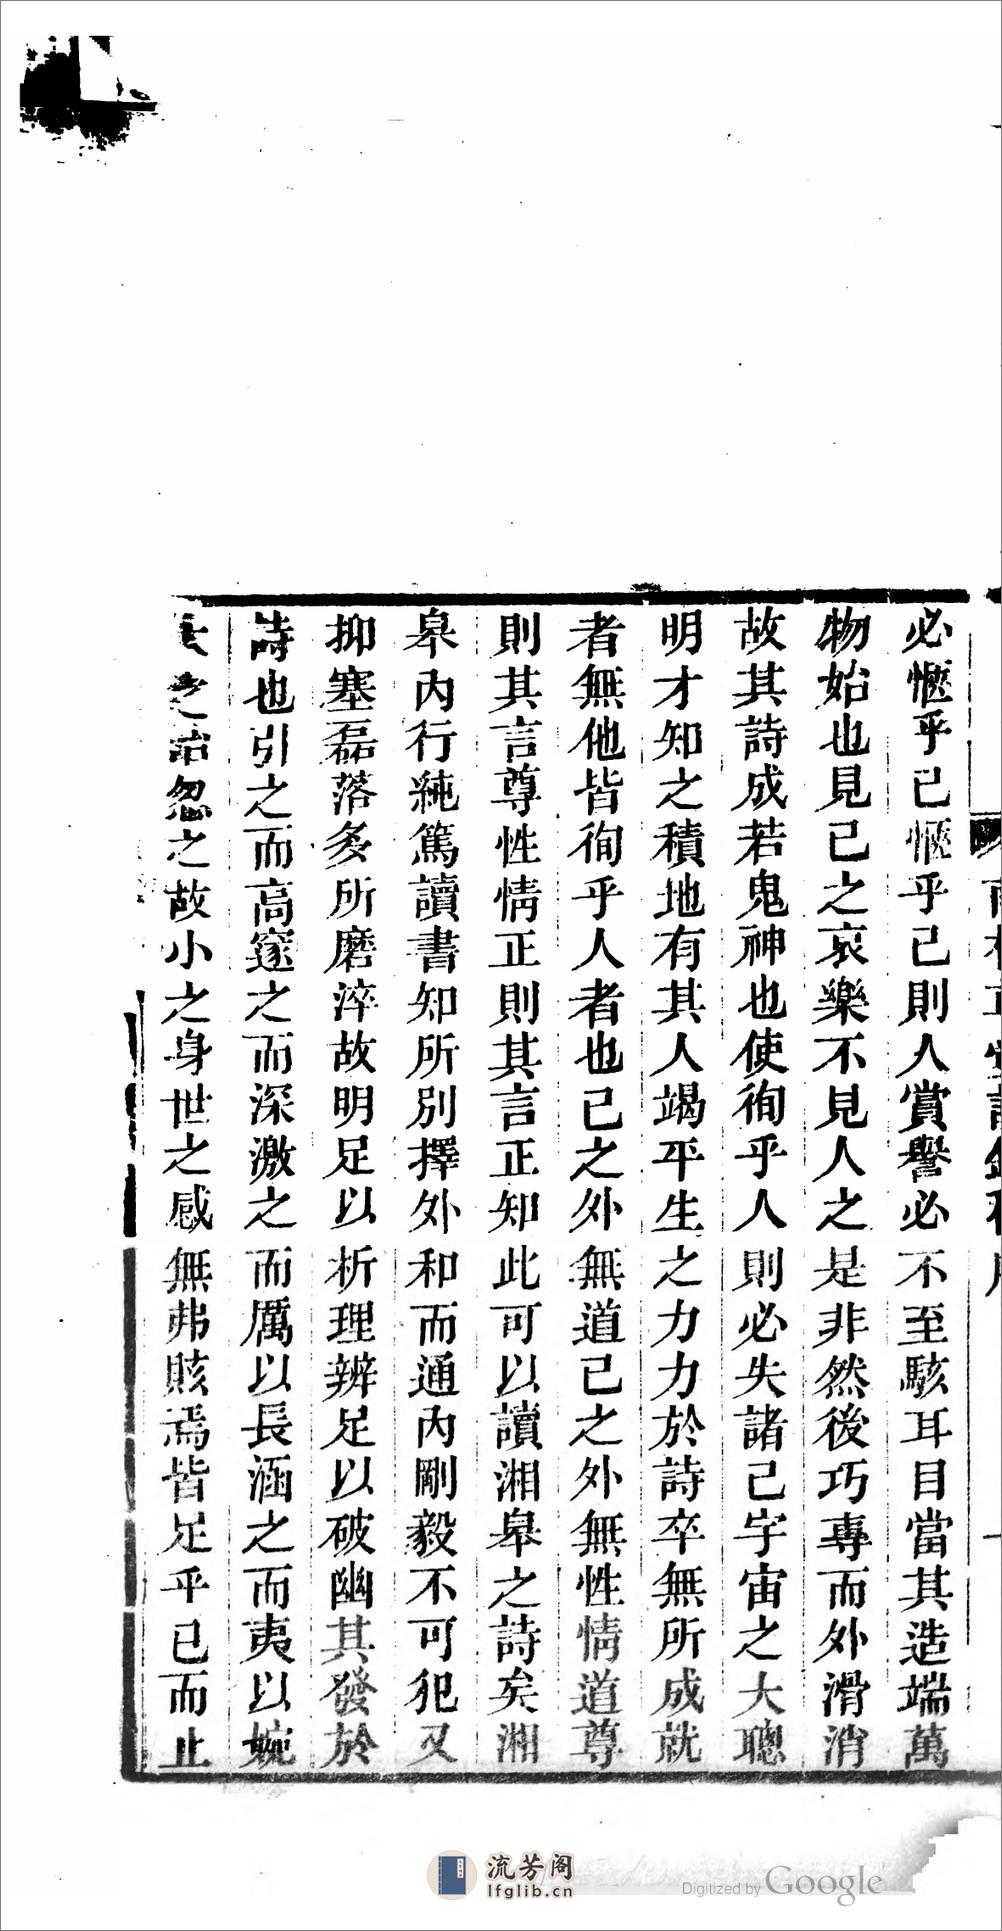 必愜乎己愜乎己則人賞譽必不至駭耳目當其造端萬
物始也見己之哀樂不見人之是非然後巧專而外滑消
故其詩成若鬼神也使徇乎人則必失諸己宇宙之大聰
明才知之積地有其人竭平生之力力於詩卒無所成就
者無他皆徇乎人者也己之外無道己之外無性情道尊
則其言尊性情正則其言正知此可以讀湘皋之詩矣湘
皋內行純篤讀書知所別擇外和而通內剛毅不可犯又
抑塞磊落多所磨淬故明足以析理辨足以破幽其發於
詩也引之而高窾之而深激之而厲以長涵之而夷以婉
之治忽之故小之身世之感無弗賅焉皆足乎己而止
流芳阁
lfglib.cn
Digitized by Google